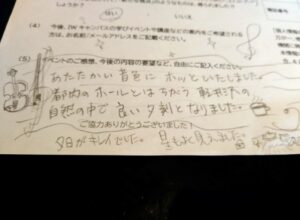 いいえ
(4) 今後、iWキャンパスの学びイベントや講座などの案内をご希望される
方は、お名前/メールアドレスをご記載ください。
(5) イベントのご感想、今後の内容の要望など、自由にご記入ください。
あたたかい音色に ホッといたしました。
都内のホールとはちがう 軽井沢の
自然の中で 良い夕刻となりました。
ご協力ありがとうございました!
夕日がキレイでした。 星もよく見えました。